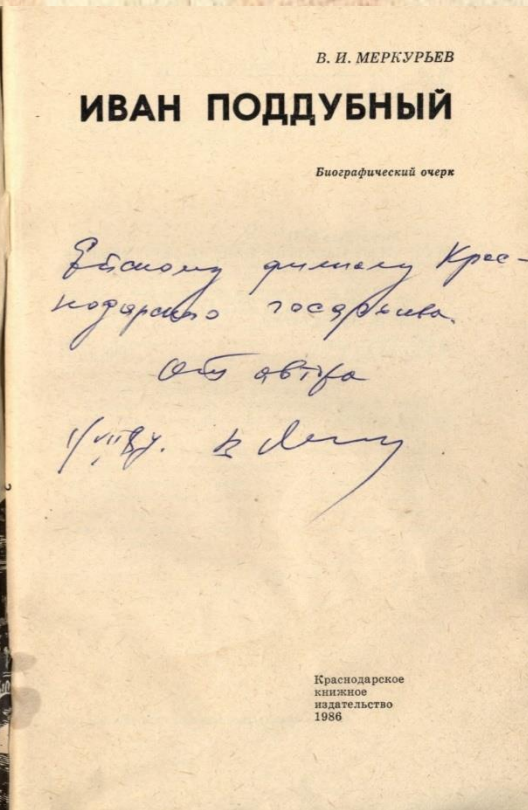 В. И. МЕРКУРЬЕВ
ИВАН ПОДДУБНЫЙ
Биографический очерк
Ейскому филиалу Крас-
нодарского госархива.
От автора
Краснодарское
книжное
издательство
1986